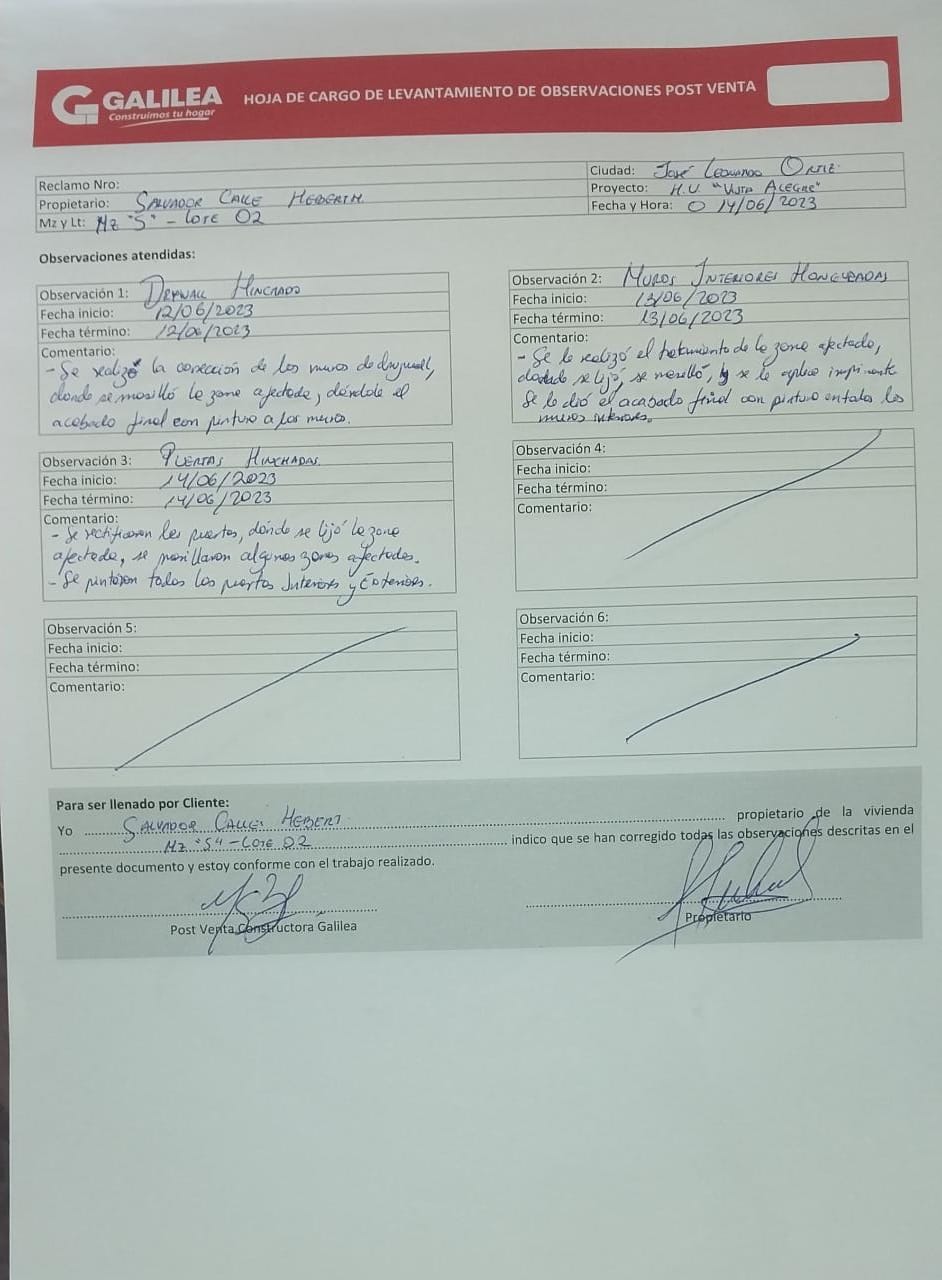 GALILEA
Construimos tu hogar
HOJA DE CARGO DE LEVANTAMIENTO DE OBSERVACIONES POST VENTA
Reclamo Nro:
Propietario: SALVADOR CALLE HEBERTH
Mz y Lt: Mz "S" - LOTE 02
Ciudad: JOSÉ LEONARDO ORTIZ
Proyecto: H.U. "VISTA ALEGRE"
Fecha y Hora: 14/06/2023
Observaciones atendidas:
Observación 1: DRYWALL HINCHADO
Fecha inicio: 12/06/2023
Fecha término: 12/06/2023
Comentario:
- Se realizó la corrección de los muros de drywall,
donde se masilló la zona afectada, dándole el
acabado final con pintura a los muros.
Observación 2: MUROS INTERIORES HONGUEADAS
Fecha inicio: 13/06/2023
Fecha término: 13/06/2023
Comentario:
- Se le realizó el tratamiento de la zona afectada,
se lijó, se masilló, y se le aplico imprimante
Se le dió el acabado final con pintura en todos los
muros interiores.
Observación 3: PUERTAS HINCHADAS
Fecha inicio: 14/06/2023
Fecha término: 14/06/2023
Comentario:
- Se rectificaron las puertas, dónde se lijó la zona
afectada, se masillaron algunas zonas afectadas.
- Se pintaron todas las puertas Interiores y Exteriores.
Observación 4:
Fecha inicio:
Fecha término:
Comentario:
Observación 5:
Fecha inicio:
Fecha término:
Comentario:
Observación 6:
Fecha inicio:
Fecha término:
Comentario:
Para ser llenado por Cliente:
Yo SALVADOR CALLE HEBERT propietario de la vivienda
Mz "S" - LOTE 02 indico que se han corregido todas las observaciones descritas en el
presente documento y estoy conforme con el trabajo realizado.
Post Venta Constructora Galilea
Propietario